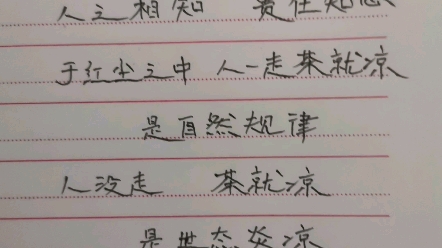 人之相知 贵在知心
于红尘之中 人一走茶就凉
是自然规律
人没走 茶就凉
是世态炎凉